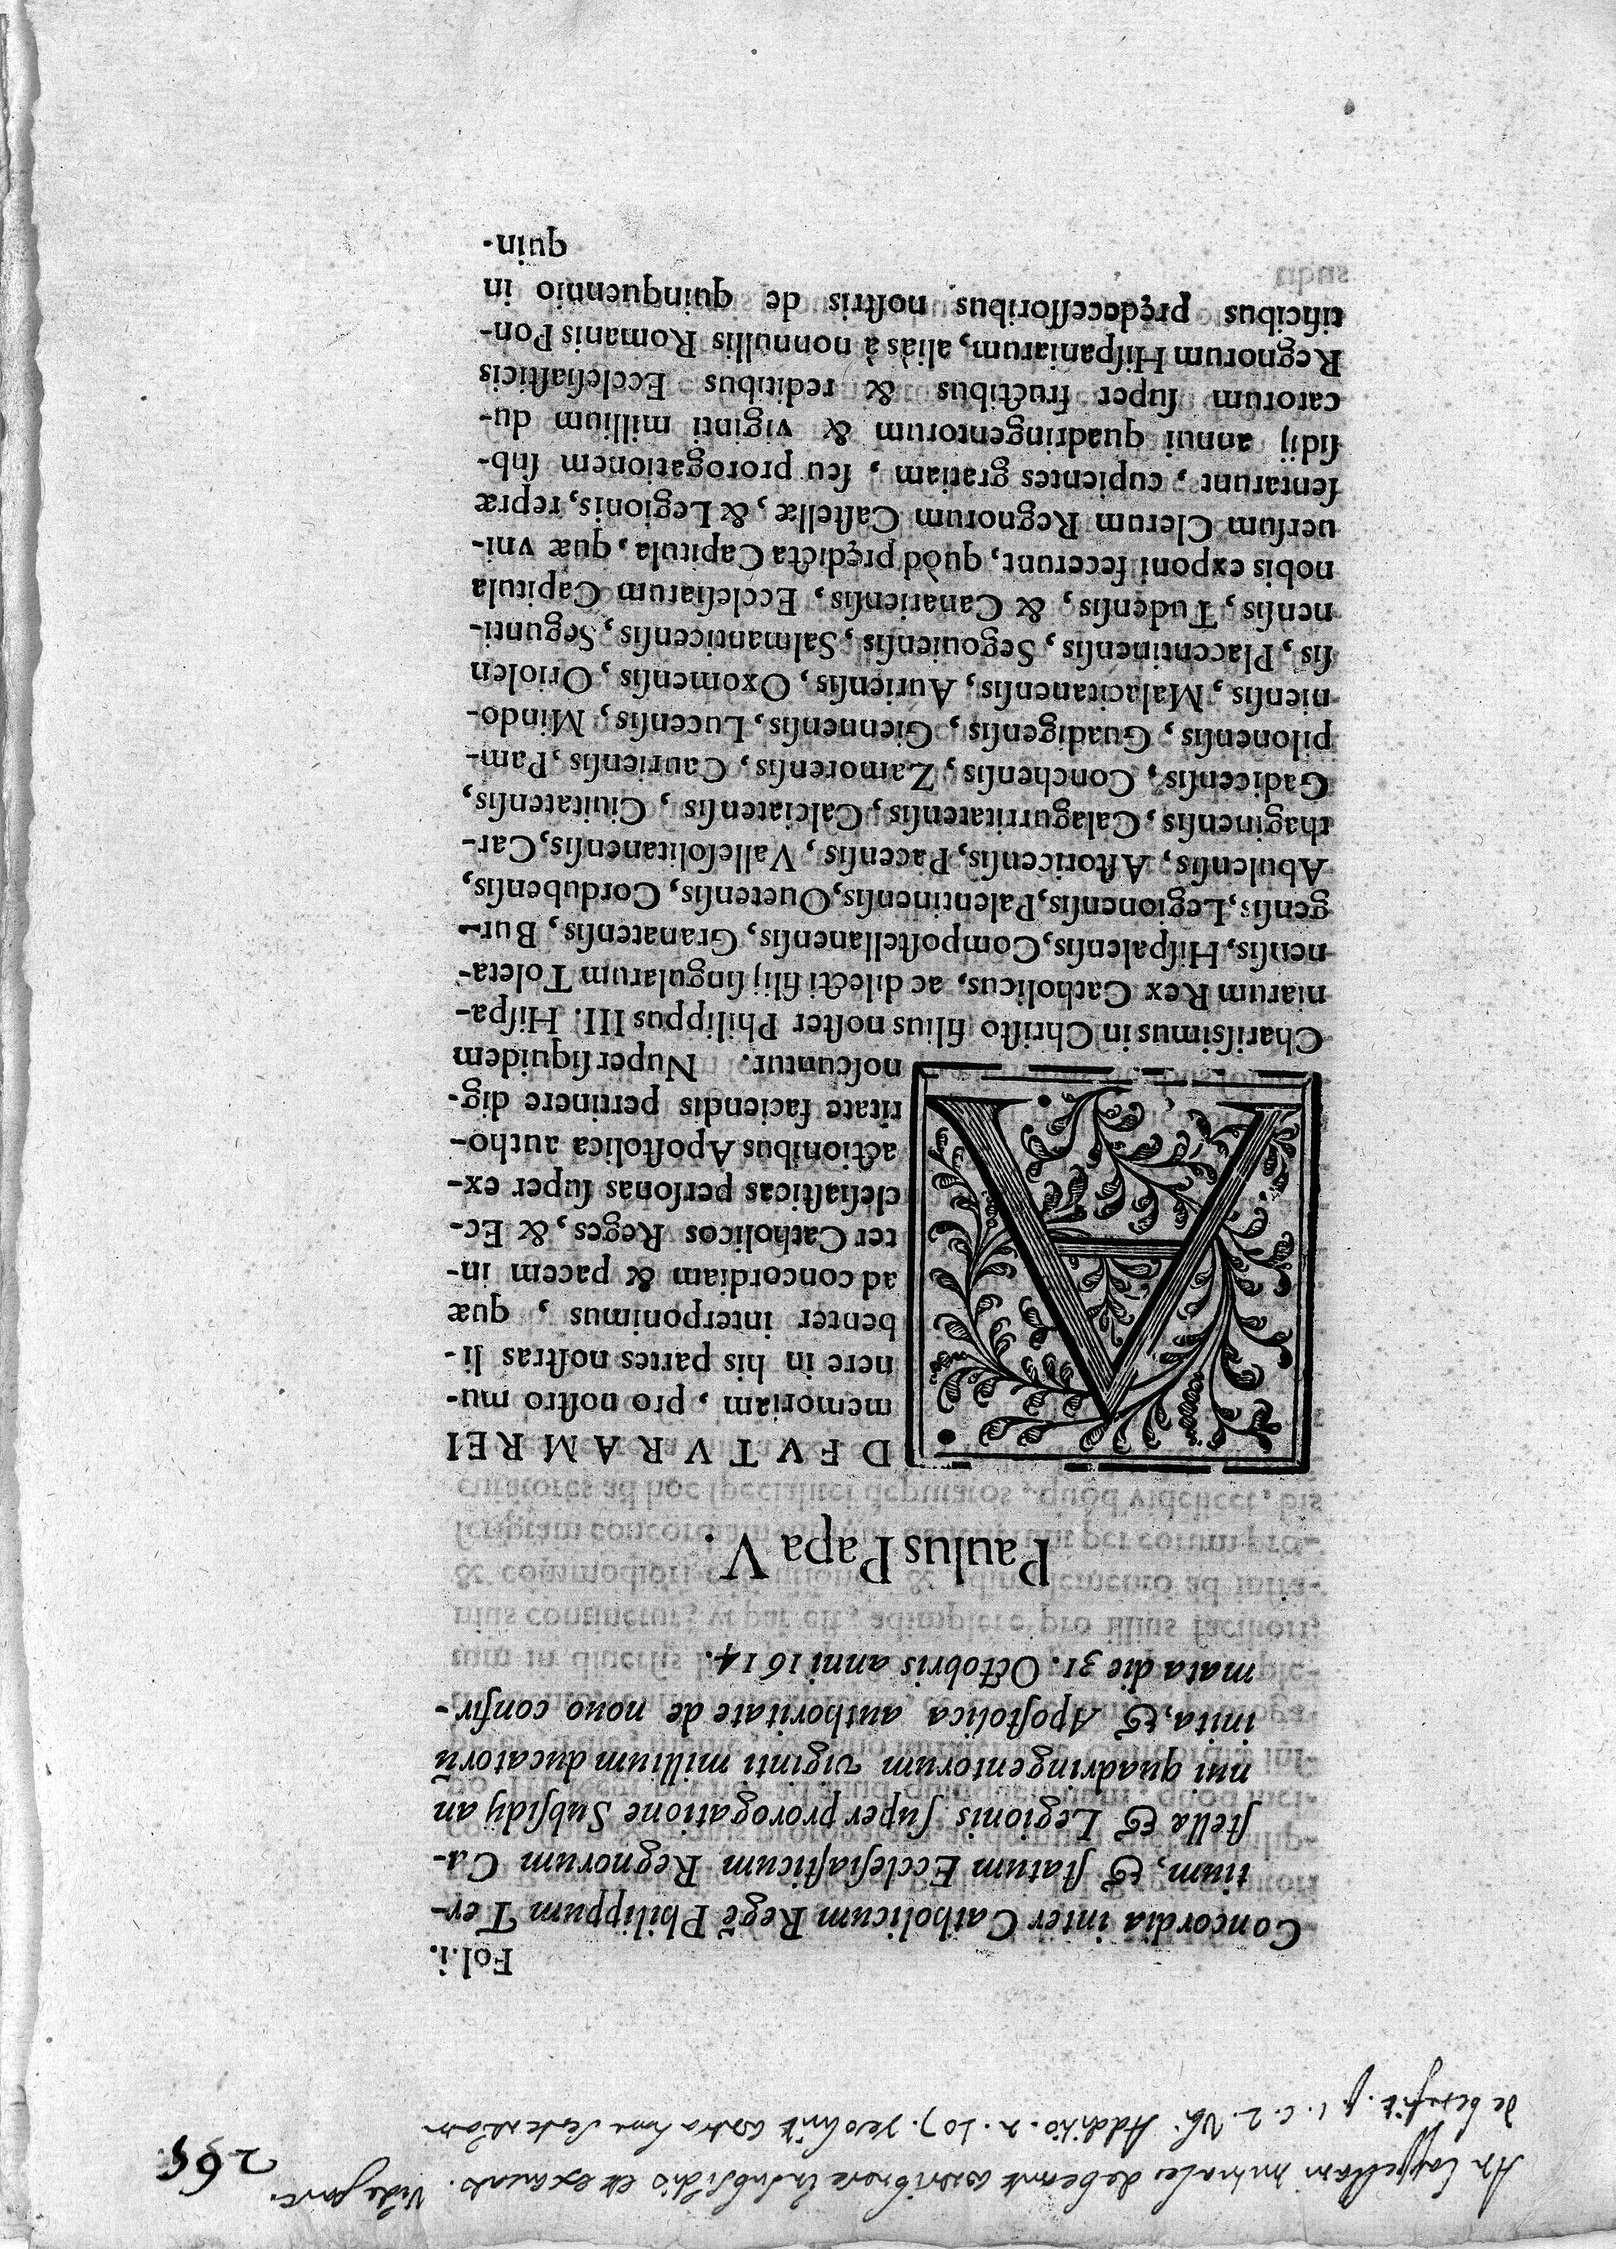 265
An Cappellani debeant contribuere in subsidio et excusado. Vide
de benefit. p. 1. c. 2. Additio. n. 107.
Fol.i.
Concordia inter Catholicum Regẽ Philippum Ter-
tium, & ſtatum Eccleſiaſticum Regnorum Ca-
ſtella & Legionis ſuper prorogatione Subſidij an
nui quadringentorum viginti millium ducatorũ
inita, & Apoſtolica authoritate de nouo confir-
mata die 31. Octobris anni 1614.
Paulus Papa V.
AD FVTVRAM REI
memoriam, pro noſtro mu-
nere in his partes noſtras li-
benter interponimus, quæ
ad concordiam & pacem in-
ter Catholicos Reges, & Ec-
cleſiaſticas perſonas ſuper ex-
actionibus Apoſtolica autho-
ritate faciendis pertinere dig-
noſcuntur. Nuper ſiquidem
Chariſsimus in Chriſto filius noſter Philippus III. Hiſpa-
niarum Rex Catholicus, ac dilecti filij ſingularum Toleta-
nenſis, Hiſpalenſis, Compoſtellanenſis, Granatenſis, Bur-
genſis, Legionenſis, Palentinenſis, Ouetenſis, Cordubenſis,
Abulenſis, Aſtoricenſis, Pacenſis, Valleſolitanenſis, Car-
thaginenſis, Calagurritatenſis, Calciatenſis, Ciuitatenſis,
Gadicenſis, Conchenſis, Zamorenſis, Caurienſis, Pam-
pilonenſis, Guadigenſis, Giennenſis, Lucenſis, Mindo-
nienſis, Malacitanenſis, Aurienſis, Oxomenſis, Oriolen
ſis, Placentinenſis, Segouienſis, Salmanticenſis, Segunti-
nenſis, Tudenſis, & Canarienſis, Eccleſiarum Capitula
nobis exponi fecerunt, quòd prędicta Capitula, quæ vni-
uerſum Clerum Regnorum Caſtellæ, & Legionis, repræ
ſentarunt, cupientes gratiam, ſeu prorogationem ſub-
ſidij annui quadringentorum & viginti millium du-
catorum ſuper fructibus & reditibus Eccleſiaſticis
Regnorum Hiſpaniarum, aliàs à nonnullis Romanis Pon-
tificibus prędeceſſoribus noſtris de quinquennio in
quin-